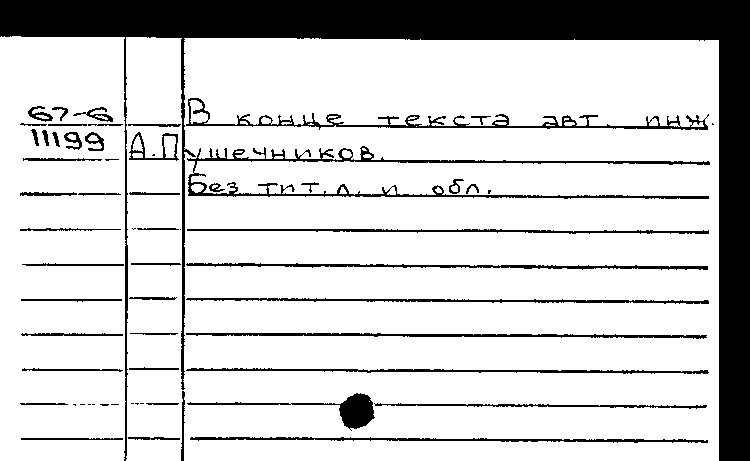 67-6 В конце текста авт. инж.
11199 А.Пушечников.
Без тит.л. и обл.